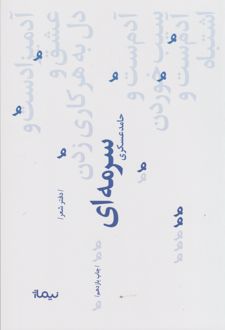 آدم‌ست و
اشتباه
آدم‌ست و
سیب خوردن
آدمیزادست و
عشق و
دل به هر کاری زدن
سرمه‌ای
حامد عسکری
/دفتر شعر/
/چاپ یازدهم/
نیماژ